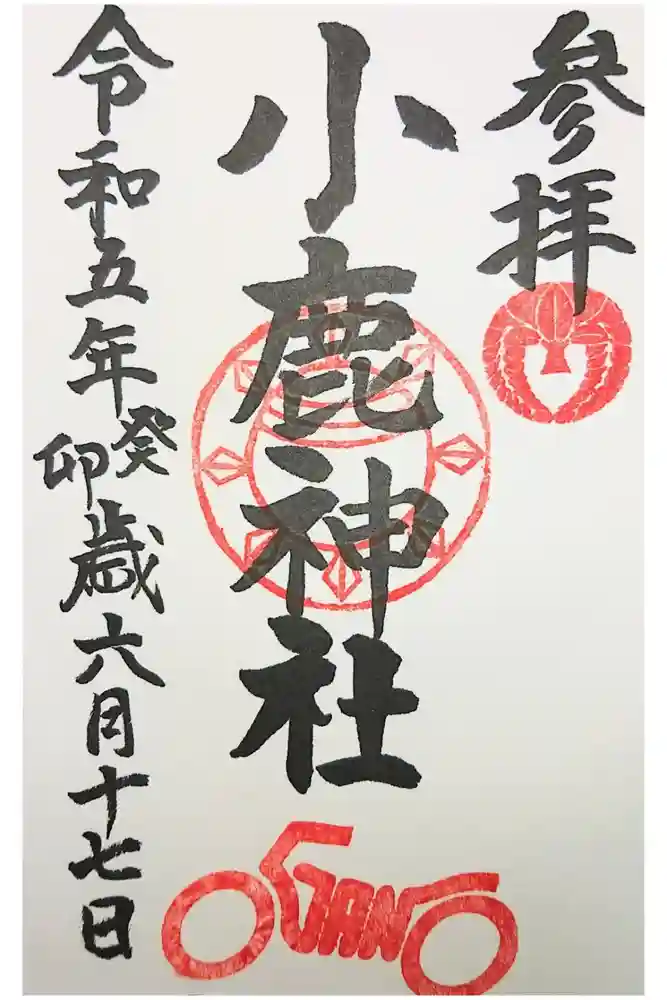 参拝
小鹿神社
令和五年癸卯歳六月十七日
OGANO